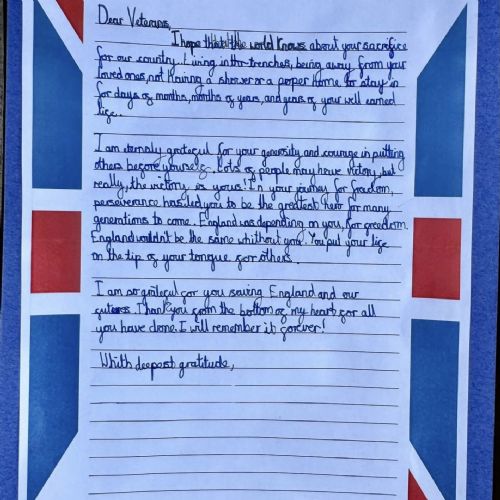 Dear Veterans,
I hope that the world knows about your sacrifice
for our country. Living in the trenches, being away from your
loved ones, not having a shower or a proper home to stay in
for days of months, months of years, and years of your well earned
life.
I am eternaly grateful for your generosity and courage in putting
others before yourself. Lots of people may have victory, but
really, the victory is yours! In your journey for freedom,
perseverance has led you to be the greatest hero for many
generations to come. England was depending on you, for freedom.
England wouldn't be the same whithout you. You put your life
on the tip of your tongue for others.
I am so grateful for you saving England and our
futures. Thank you from the bottom of my heart for all
you have done. I will remember it forever!
Whith deepest gratitude,